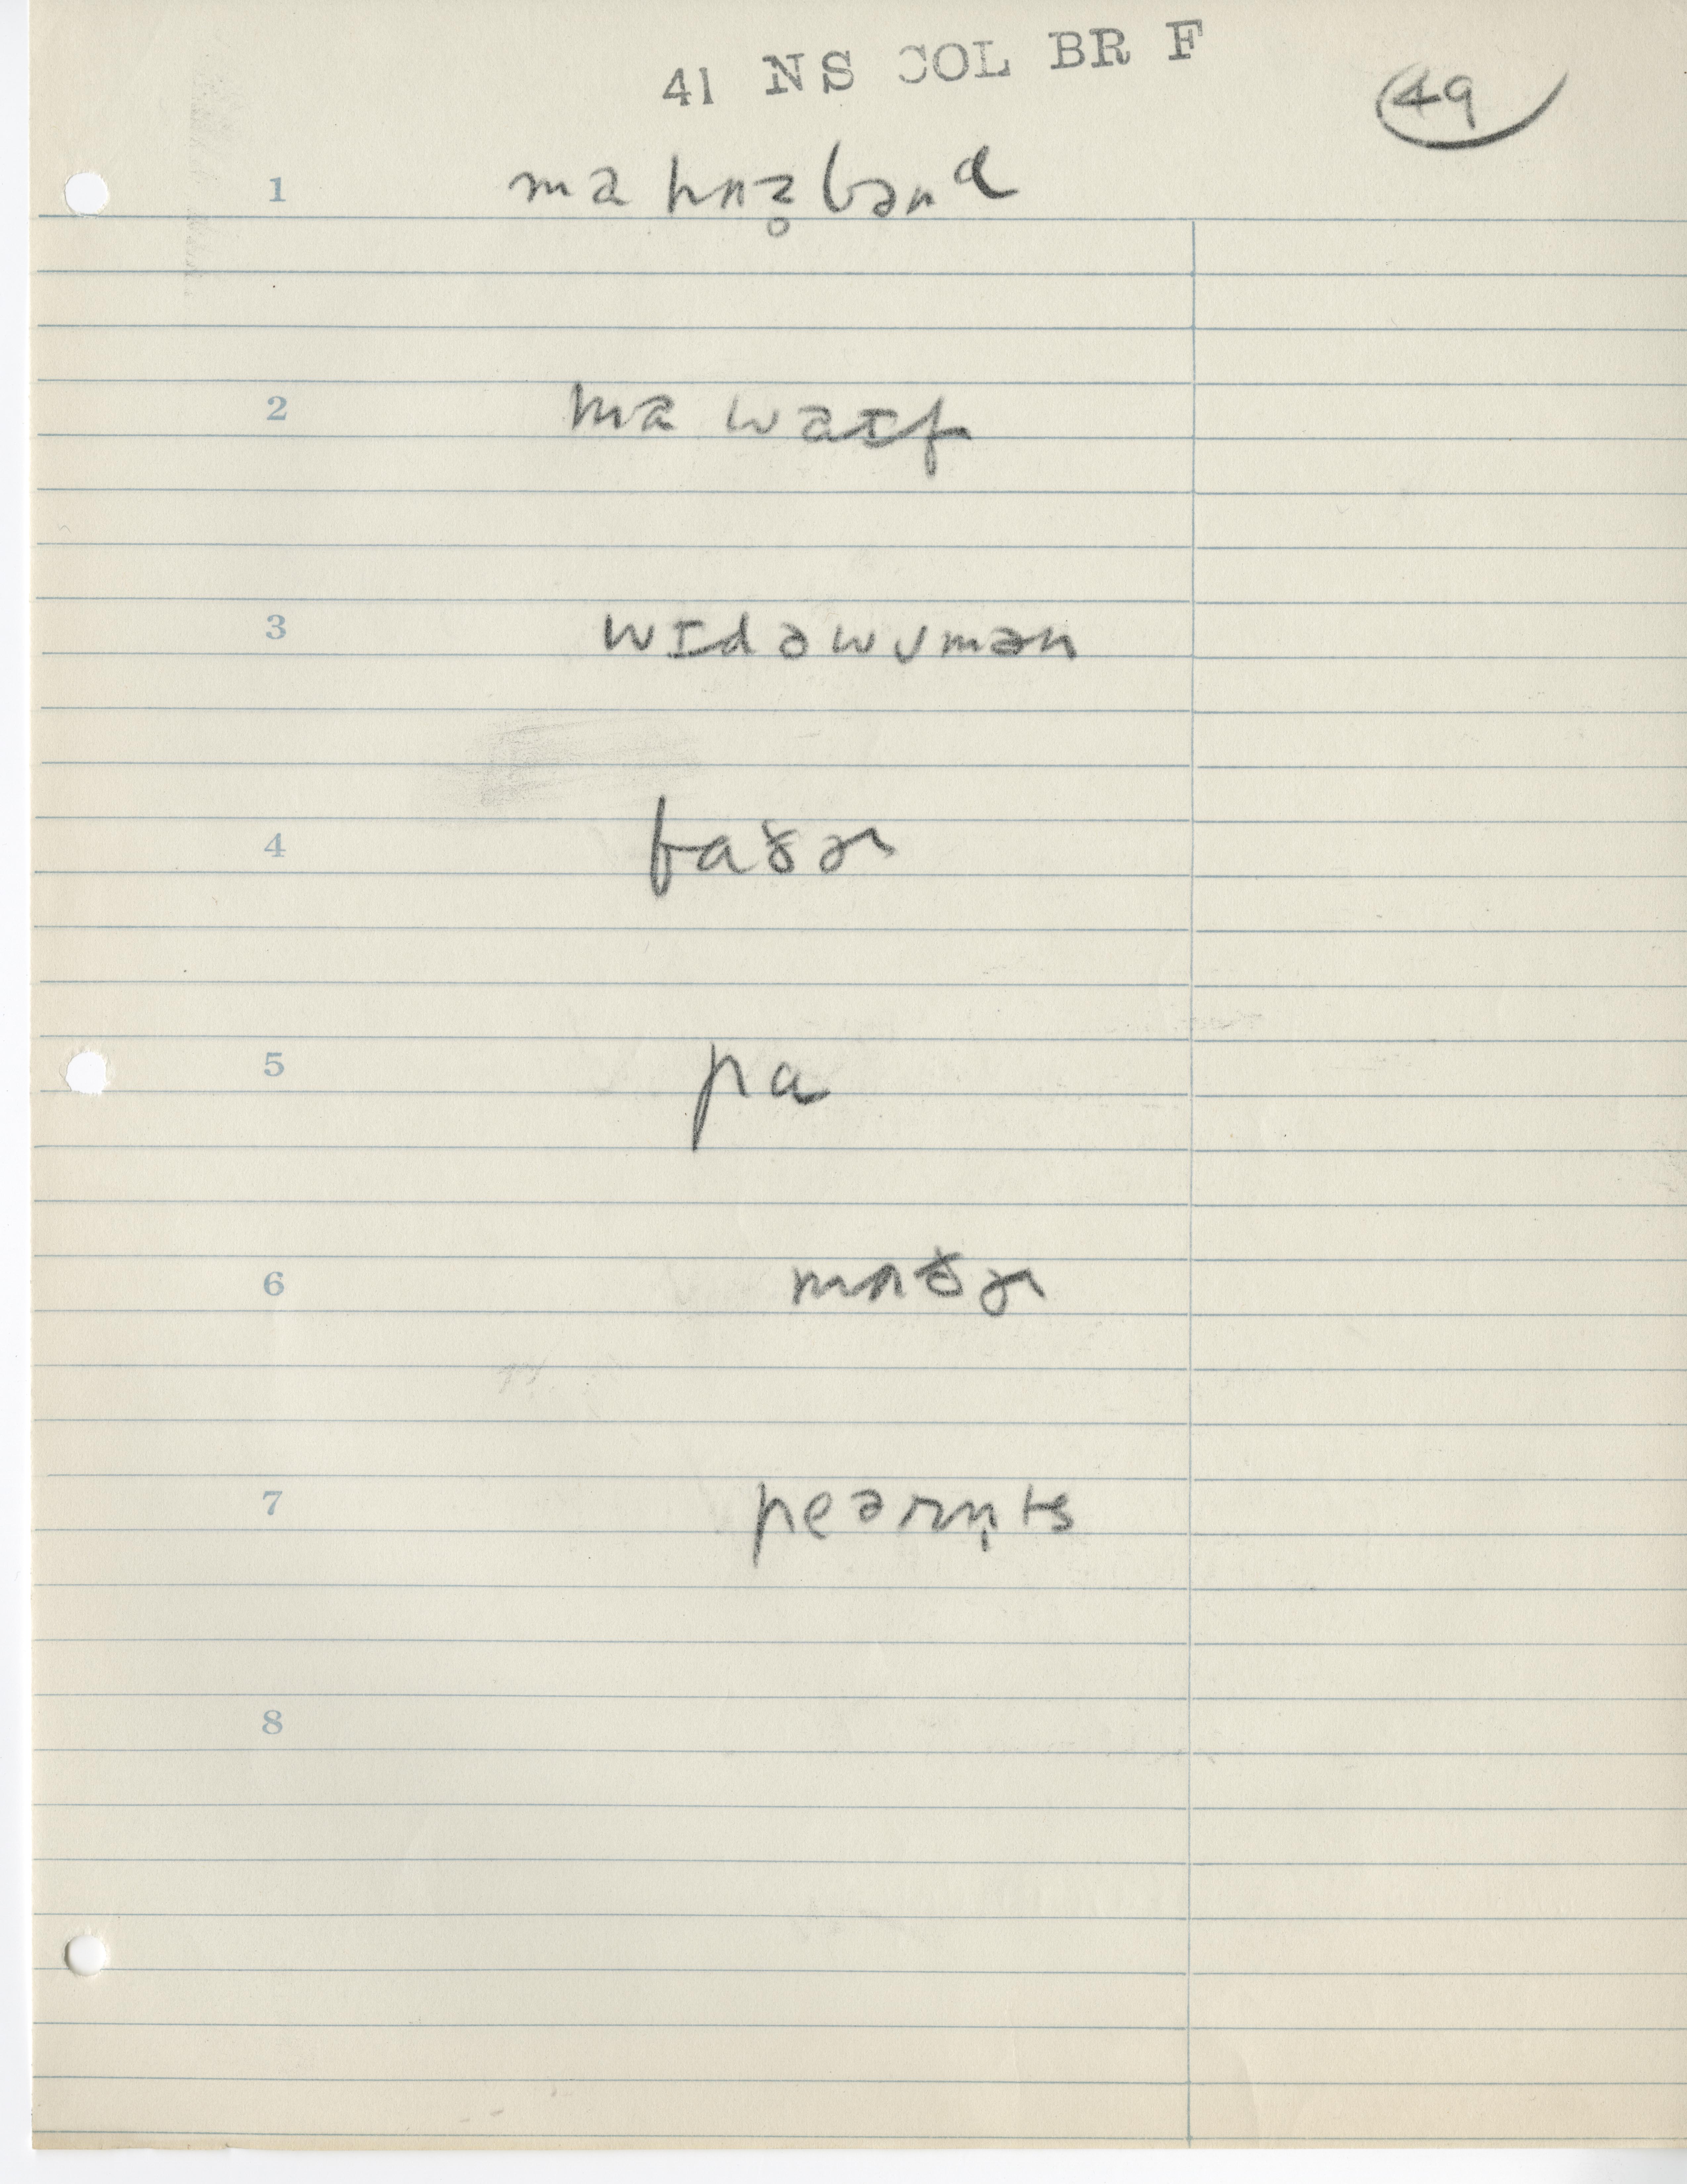 41 NS COL BR F
49
1 ma hʌz̥bənᵈ
2 ma waɪf
3 wɪdəwʊmən
4 faðɚ
5 pa
6 mʌðɚ
7 peərn̩ts
8